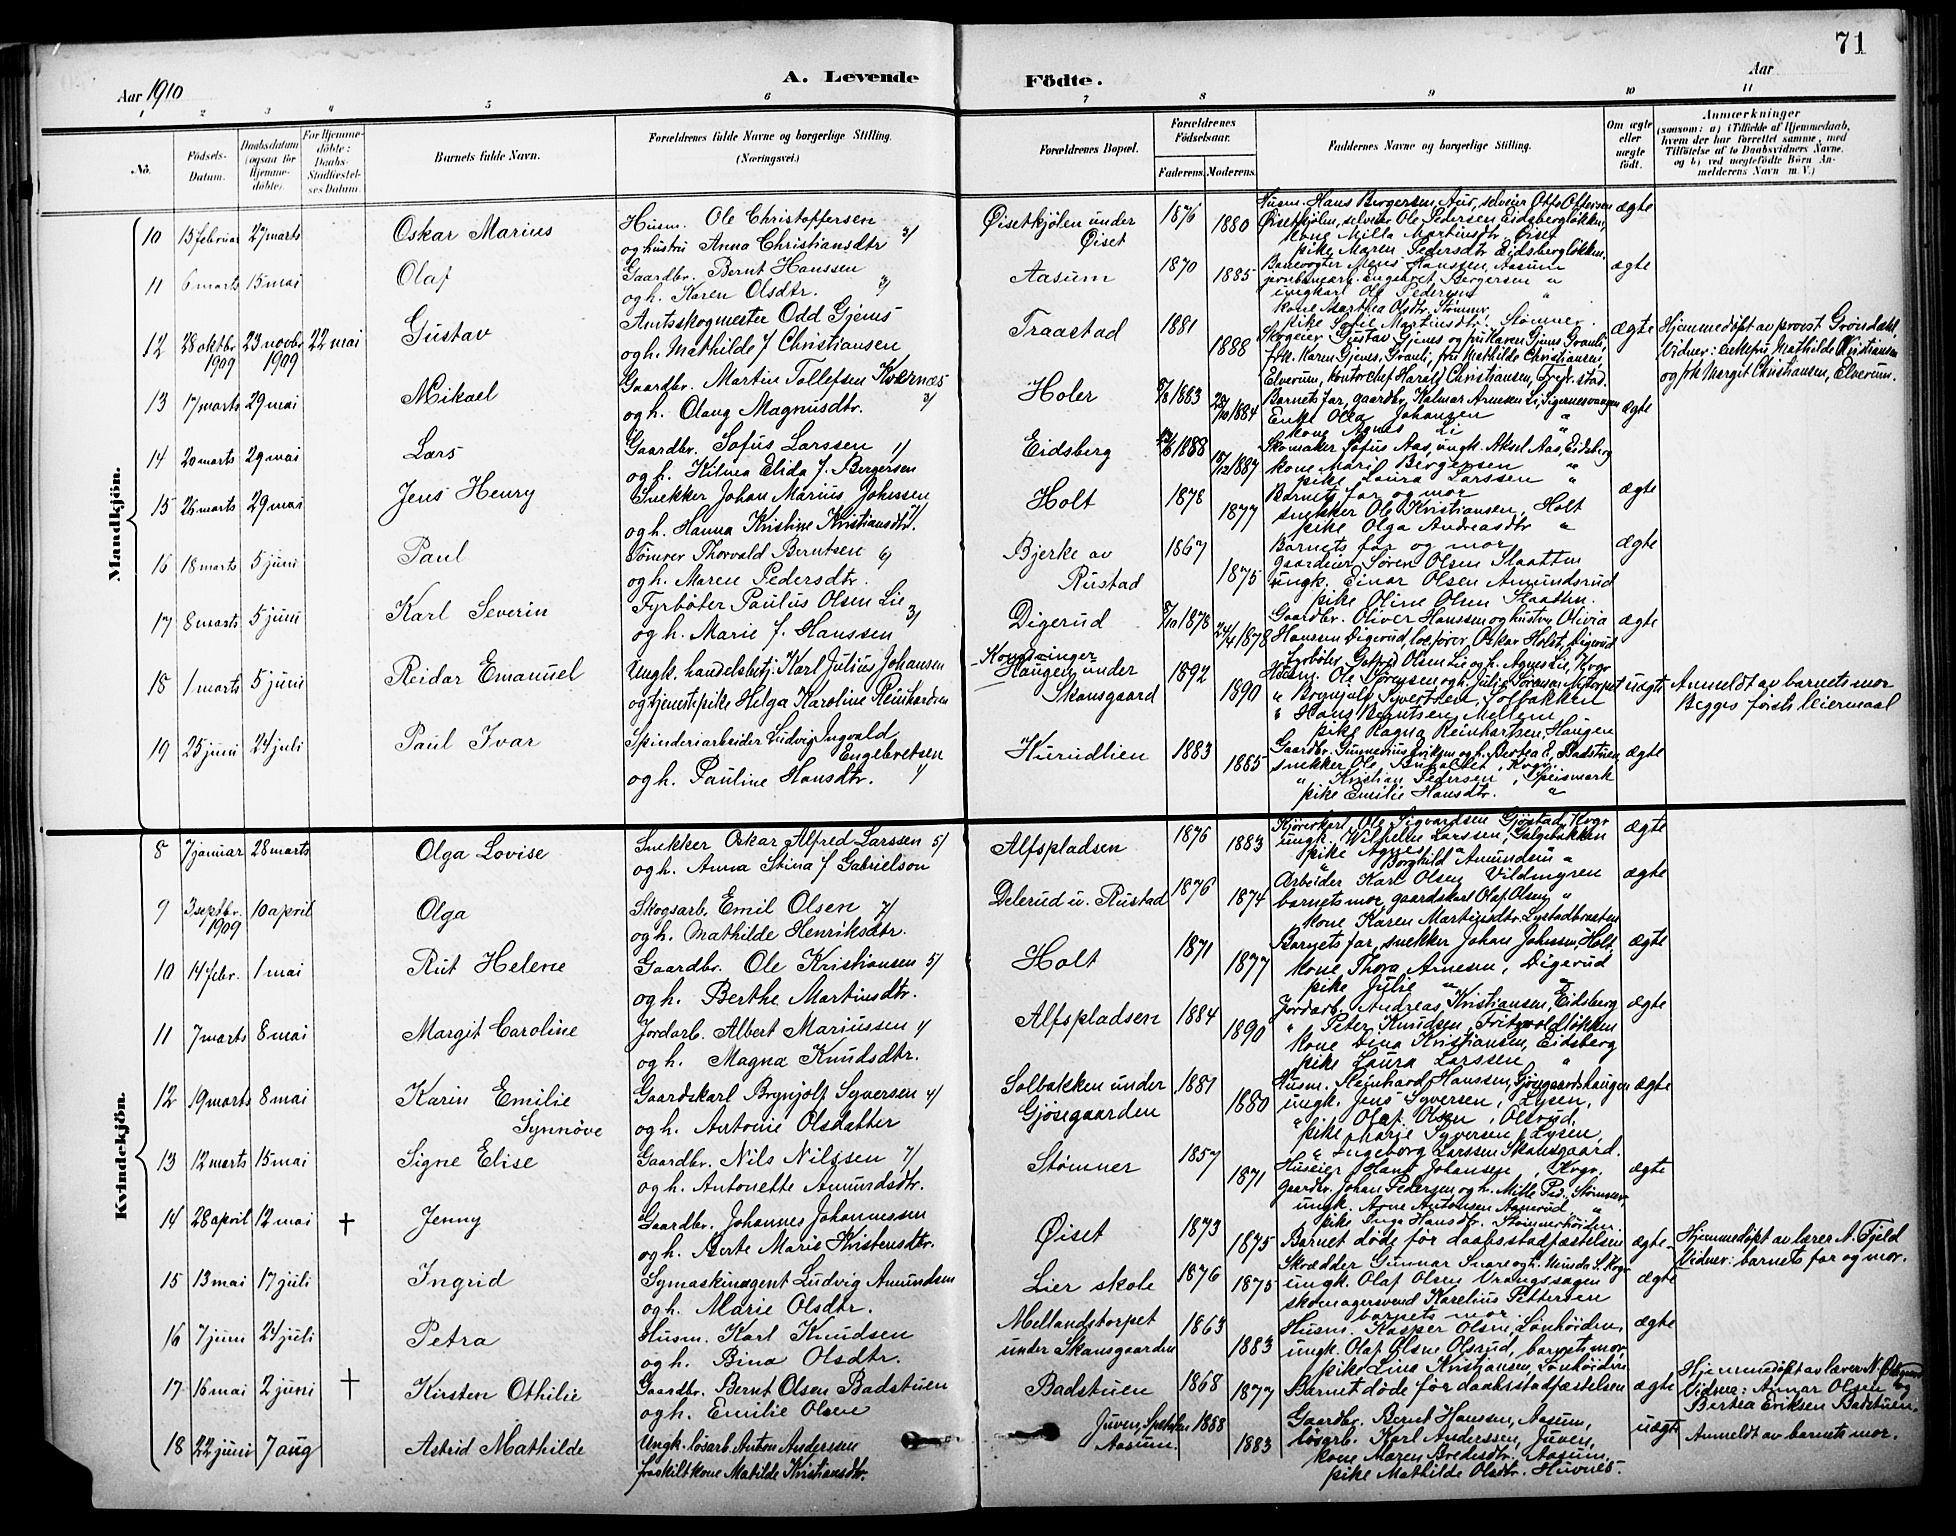 71
Aar 1910
A. Levende Födte.
Aar
1 2 3 4 5 6 7 8 9 10 11
No.
Födsels-Datum.
Daabsdatum (ogsaa for Hjemmedöbte).
For Hjemmedöbte: Daabs-Stadfæstelses Datum.
Barnets fulde Navn.
Forældrenes fulde Navne og borgerlige Stilling. (Næringsvei.)
Forældrenes Bopæl.
Forældrenes Födselsaar.
Faderens. Moderens.
Faddernes Navne og borgerlige Stilling.
Om ægte eller uægte födt.
Anmærkninger
(saasom: a) i Tilfælde af Hjemmedaab, hvem der har forrettet samme, med Tilföielse af to Daabsvidners Navne, og b) ved uægtefödte Börn Anmelderens Navn m. V.)
Mandkjön.
10 13 februar 27 marts Oskar Marius Husm. Ole Christoffersen og hustru Anna Christiansdtr 3/ Øisetkjölen under Øiset 1876 1880 Husm. Hans Bergersen, Aur, selveier Otto Ottersen Øisetkjölen, selveier Ole Pedersen Eidsbergløkken, kone Milla Martinsdtr, Øiset pike Maren Pedersdtr Eidsbergløkken ægte
11 6 marts 15 mai Olaf Gaardbr. Bernt Hanssen og h. Karen Olsdtr. 3/ Aasum 1870 1885 Banevogter Mens Hanssen, Aasum Engebret Bergersen " ungkarl Ole Pedersen " kone Marthea Olsdtr, Stömner, pike Sofie Martinsdtr, Stömner. ægte
12 28 oktbr 1909 23 novbr 1909 22 mai Gustav Amtsskogmester Odd Gjems og h. Mathilde f Christiansen Traastad 1881 1888 Skogeier Gustav Gjems og fru Karen Gjems, Granli, frk. Karen Gjems, Granli, fru Mathilde Christiansen, Elverum, kontorchef Harald Christiansen, Fredr.stad. ægte Hjemmedøpt av provst Grøndahl, Vidner: enkefru Mathilde Kristiansen og frk Margit Christiansen, Elverum.
13 17 marts 29 mai Mikael Gaardbr. Martin Tollefsen Kvernæs og h. Olaug Magnusdtr. 3/ Holer 8/8 1883 28/10 1884 Barnets far, gaardbr. Halmar Arnesen Li, Sigernesvangen Enke Olea Johansen " kone Agnes Li " ægte
14 20 marts 29 mai Lars Gaardbr. Sofus Larssen 1/ og h. Hilma Elida f. Bergersen Eidsberg 1888 1887 Skomaker Sofus Aas, ungk. Aksel Aas, Eidsberg kone Marie Bergersen " pike Laura Larssen "
15 26 marts 29 mai Jens Henry Snekker Johan Marius Johnssen og h. Hanna Kristine Kristiansdtr. 7/ Holt 1878 1877 Barnets far og mor snekker Ole Kristiansen, Holt pike Olga Andreasdtr " ægte
16 18 marts 5 juni Paul Tömrer Thorvald Berntsen 6/ og h. Maren Pedersdtr. Bjerke av Rustad 1867 1875 Barnets far og mor gaardeier Søren Olsen Slaatten ungk. Einar Olsen Amundsrud pike Oline Olsen Slaatten. ægte
17 8 marts 5 juni Karl Severin Fyrbøter Paulus Olsen Lie og h. Marie f. Hanssen 3/ Digerud 8/10 1878 24/4 1878 Gaardbr. Oliver Hanssen og hustru Olivia Hanssen Digerud, lok.fører Oskar Holst, Digerud Fyrbøter Gotfred Olsen Lie og h. Agnes Lie, Kvgr ægte
18 1 marts 5 juni Reidar Emanuel Ungk. handelsbetj. Karl Julius Johansen og tjenestepike Helga Karoline Reinhardsen Kongsvinger Haugen under Skansgaard 1892 1890 Husm. Ole Sörensen og h. Julie Sörensen Nytorpet " Brynjulf Syversen, Solbakken " Hans Berntsen Mellem pike Ragna Reinhartsen, Haugen uægte Anmeldt av barnets mor Begges første leiermaal
19 25 juni 24 juli Paul Ivar Spinderiarbeider Ludvig Ingvald Engebretsen og h. Pauline Hansdtr. 1/ Kurudlien 1883 1885 Gaardbr. Gunnerius Eriksen og h. Bertea E, Badstuen snekker Ole, Kvgr. " Kristian Pedersen, Speismark pike Emilie Hansdtr. " ægte
Kvindekjön.
8 7 januar 28 marts Olga Lovise Snekker Oskar Alfred Larssen 5/ og h. Anna Stina f Gabrielson Alfspladsen 1876 1883 Kjørerkarl Ole Sigvardsen Gjøstad, Kvgr ungk. Wilhelm Larssen, Galgebakken pike Agnes " " Borghild Amundsen " ægte
9 3 septbr. 1909 10 april Olga Skogsarb. Emil Olsen 7/ og h. Mathilde Henriksdtr. Delerud u. Rustad 1876 1874 Arbeider Karl Olsen, Vildmyren barnets mor, gaardskarl Olaf Olsen " kone Karen Martinsdtr. Lystadbraaten ægte
10 14 febr. 1 mai Rut Helene Gaardbr. Ole Kristiansen 5/ og h. Berthe Martinsdtr. Holt 1871 1877 Barnets far, snekker Johan Johnssen, Holt, kone Thora Arnesen, Digerud pike Julie " " ægte
11 7 marts 8 mai Margit Caroline Jordarb. Albert Mariussen 1/ og h. Magna Knudsdtr. Alfspladsen 1884 1890 Jordarb. Andreas Kristiansen, Eidsberg " Peter Knudsen, Fritzvoldløkken kone Dina Kristiansen, Eidsberg pike Laura Larssen " ægte
12 19 marts 8 mai Karin Emilie Synnöve Gaardskarl Brynjolf Syversen 4/ og h. Antonie Olsdatter Solbakken under Gjøsegaarden 1881 1880 Husm. Reinhard Hanssen, Gjösegaardshaugen ungk. Jens Syversen, Lysen, " Olaf Olsen, Olsrud, pike Marie Syversen, Lysen, " Ingeborg Larssen Skansgaard. ægte
13 12 marts 15 mai Signe Elise Gaardbr. Nils Nilssen 7/ og h. Antonette Amundsdtr. Stømner 1857 1871 Huseier Hans Johansen, Kvgr. gaardbr. Johan Pedersen og h. Mille Ped. Stömner, ungk. Arne Antonsen Aamrud, " pike Inga Hansdtr. Stömnerhøiden. ægte
14 28 april 12 mai † Jenny Gaardbr. Johannes Johannessen og h. Berte Marie Kristensdtr. Øiset 1873 1875 Barnet døde før daabsstadfæstelsen ægte Hjemmedøpt av lærer N. Fjeld Vidner: barnets far og mor.
15 13 mai 17 juli Ingrid Symaskinagent Ludvig Amundsen og h. Marie Olsdtr. Lier skole 1876 1875 Skrædder Gunnar Snare og h. Minda S. Kvgr ungk. Olaf Olsen Vrangssagen skomagersvend Karelius Pettersen barnets mor ægte
16 7 juni 24 juli Petra Husm. Karl Knudsen og h. Bina Olsdtr. Mellandstorpet under Skansgaarden 1863 1883 Husm. Kasper Olsen, Lönhöiden, ungk. Olaf Olsen Olsrud, barnets mor, pike Lina Kristiansen, Lönhöiden ægte
17 16 mai 2 juni † Kirsten Othilie Gaardbr. Bernt Olsen Badstuen og h. Emilie Olsen Badstuen 1868 1877 Barnet døde før daabsstadfæstelsen ægte Hjemmedøpt av lærer N. Vidner: Annar Olsen og Bertea Eriksen Badstuen.
18 22 juni 7 aug Astrid Mathilde Ungk. løsarb. Anton Anderssen fraskilt kone Matilde Kristiansdtr. Juven, Spetalen Aasum. 1888 1883 Gaardbr. Bernt Hanssen, Aasum, løsarb. Karl Anderssen, Juven, kone Maren Bredesdtr, Aasum, pike Mathilde Olsdtr. Huvnes. uægte Anmeldt av barnets mor.